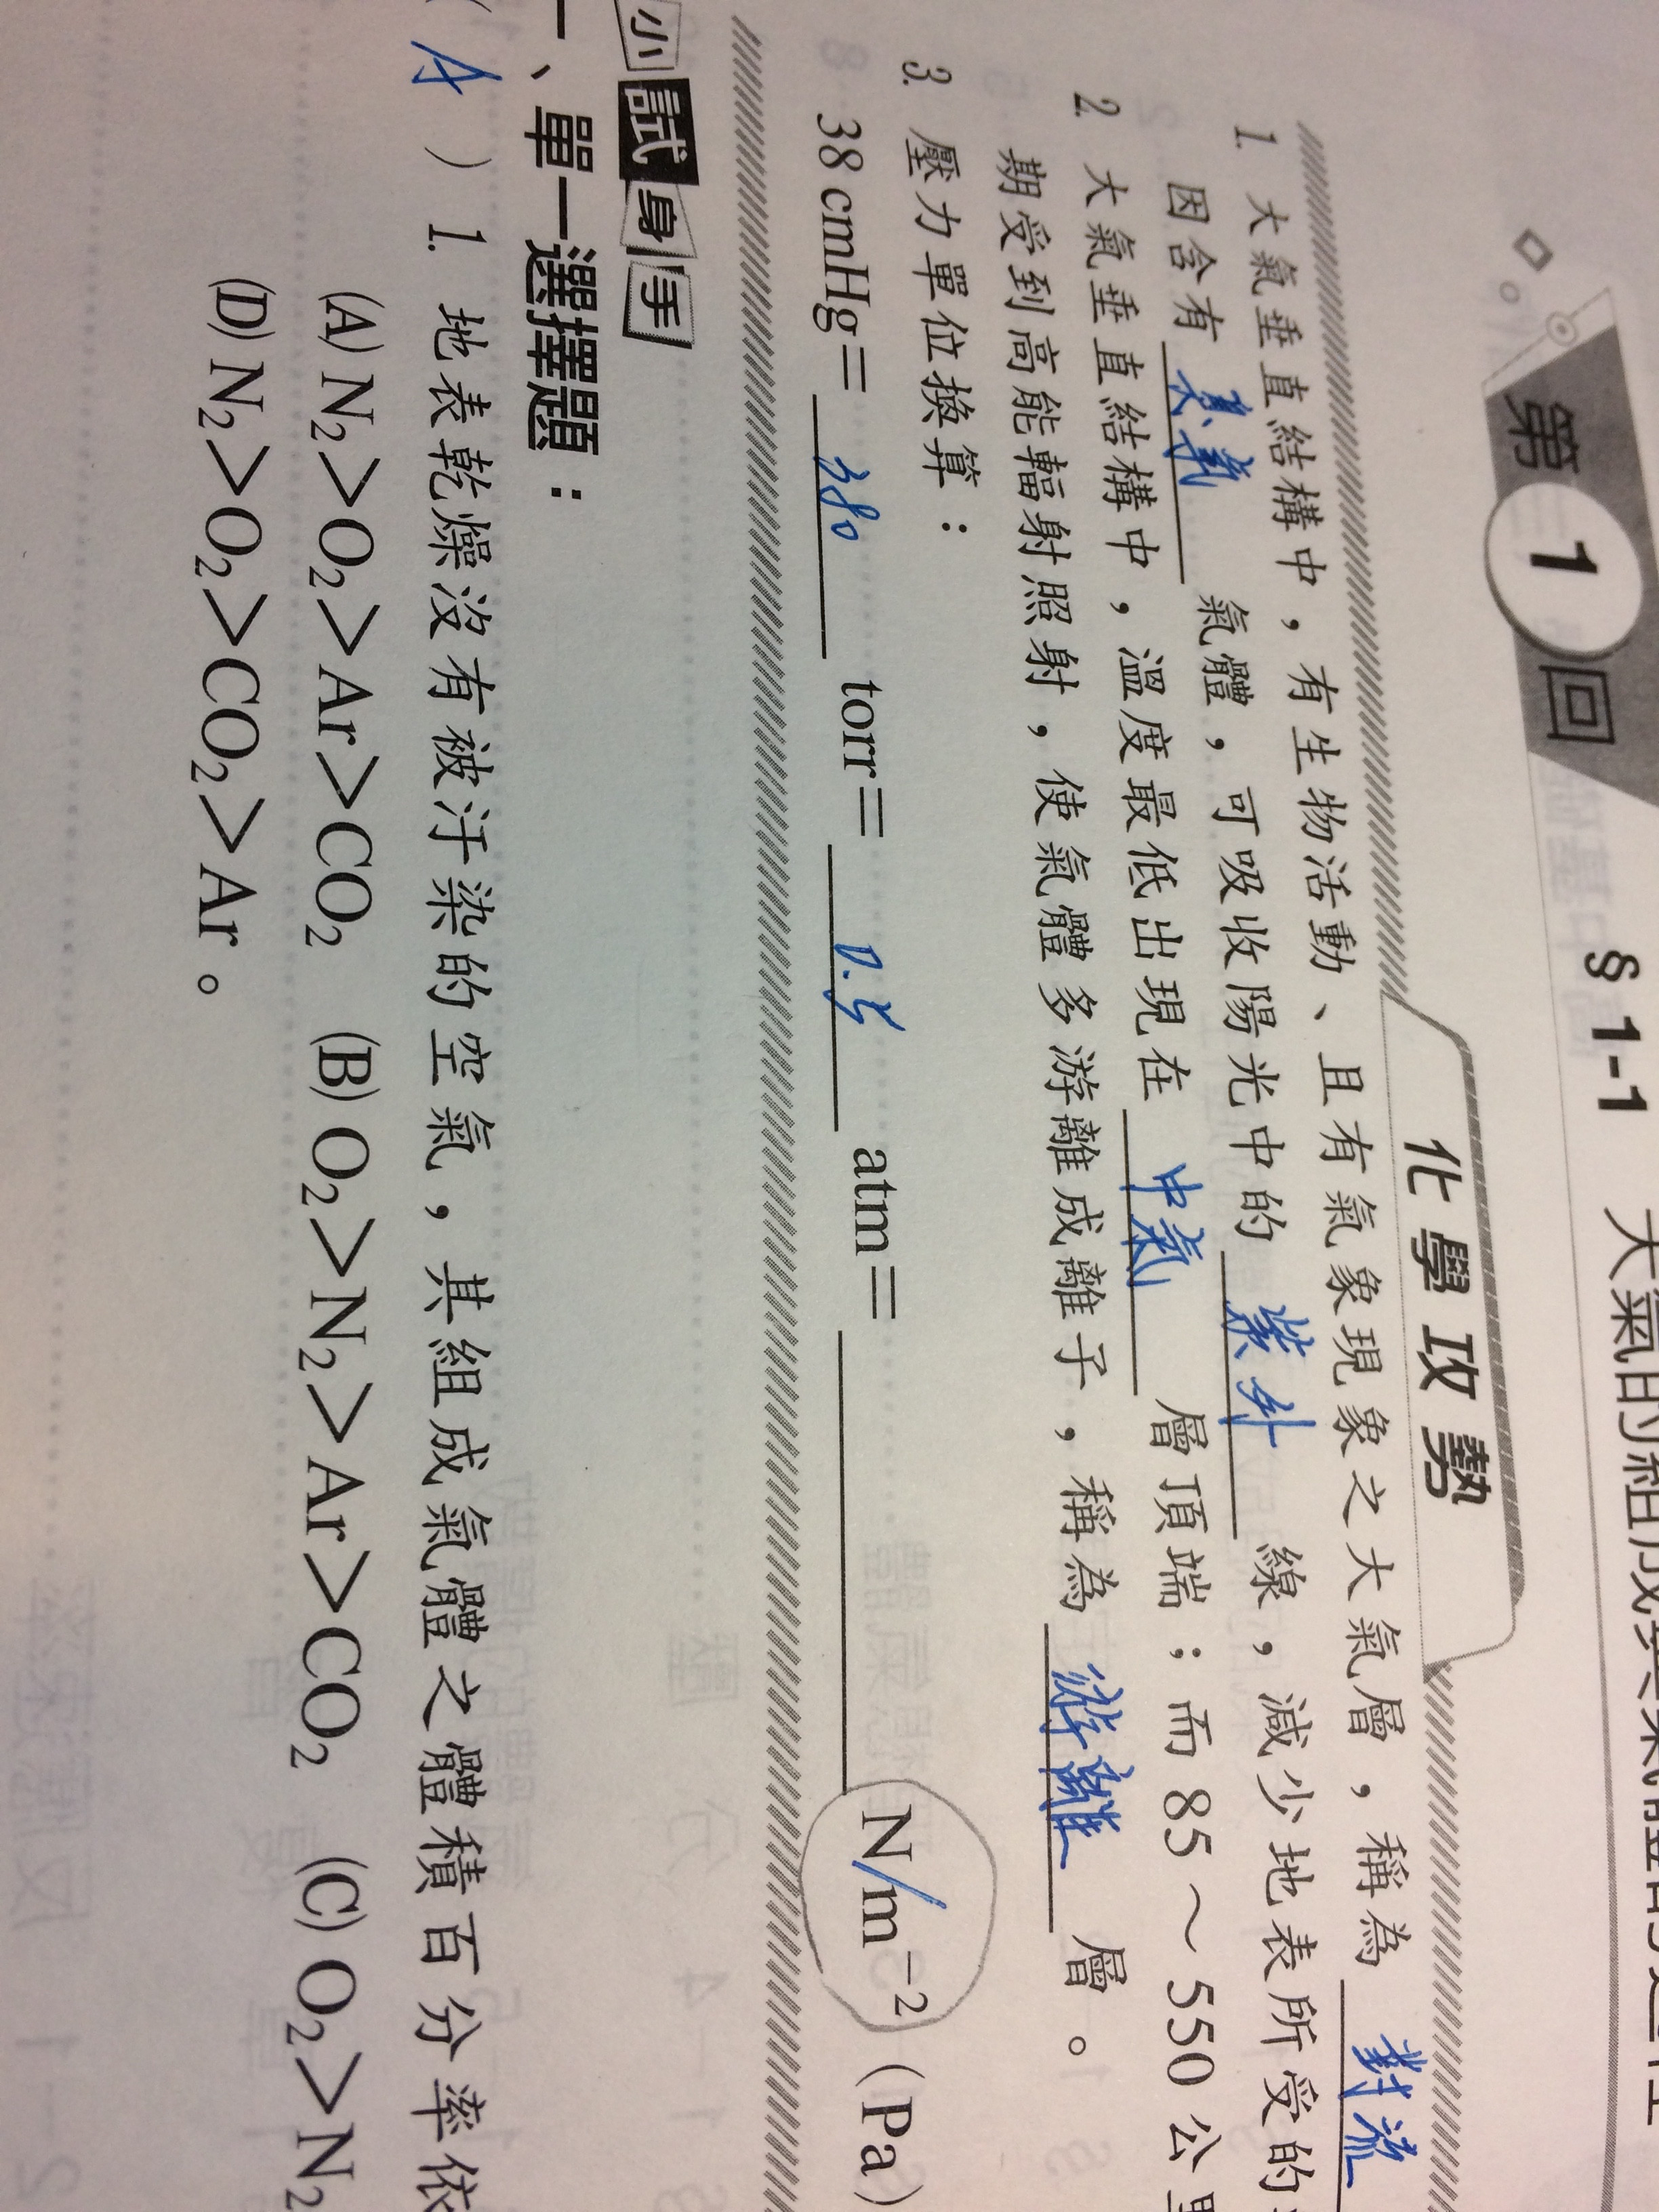 第1回 §1-1 大氣的組成與
化學攻勢
1. 大氣垂直結構中，有生物活動、且有氣象現象之大氣層，稱為 對流
因含有 臭氧 氣體，可吸收陽光中的 紫外 線，減少地表所受的
2. 大氣垂直結構中，溫度最低出現在 中氣 層頂端；而85～550公里
期受到高能輻射照射，使氣體多游離成離子，稱為 游離 層。
3. 壓力單位換算：
38 cmHg＝ 380 torr＝ 0.5 atm＝ N/m⁻² (Pa)
小試身手
一、單一選擇題：
( A ) 1. 地表乾燥沒有被汙染的空氣，其組成氣體之體積百分率依
(A) N₂＞O₂＞Ar＞CO₂ (B) O₂＞N₂＞Ar＞CO₂ (C) O₂＞N₂
(D) N₂＞O₂＞CO₂＞Ar。